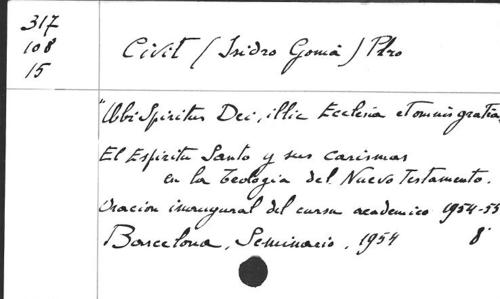 317
108
15
Civit (Isidro Gomá) Pbro
"Ubi Spiritus Dei, illic Ecclesia et omnis gratia,
El Espíritu Santo y sus carismas
en la teología del Nuevo Testamento.
Oración inaugural del curso academico 1954-55
Barcelona, Seminario, 1954 8º